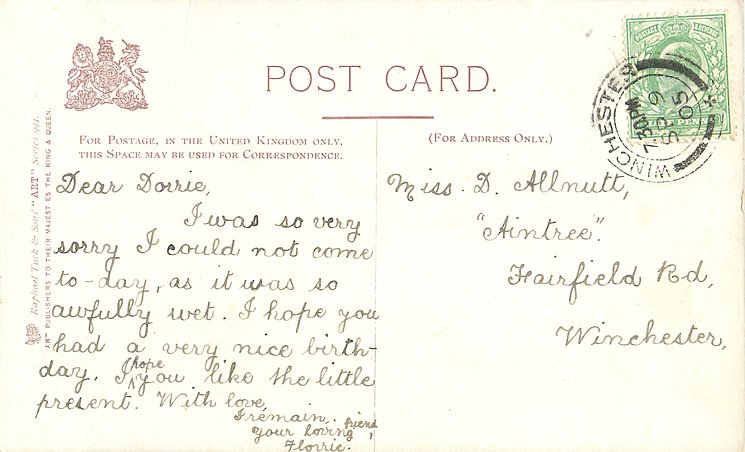 POST CARD.
FOR POSTAGE, IN THE UNITED KINGDOM ONLY,
THIS SPACE MAY BE USED FOR CORRESPONDENCE.
(FOR ADDRESS ONLY.)
Raphael Tuck & Sons' "ART" Series 994.
ART PUBLISHERS TO THEIR MAJESTIES THE KING & QUEEN.
POSTAGE REVENUE
WINCHESTER
7.30PM
SP 9
05
Dear Dorrie,
I was so very
sorry I could not come
to-day, as it was so
awfully wet. I hope you
had a very nice birth-
day. I hope you like the little
present. With love,
I remain.
your loving friend,
Florrie.
Miss. D. Allnutt,
"Aintree".
Fairfield Rd,
Winchester,